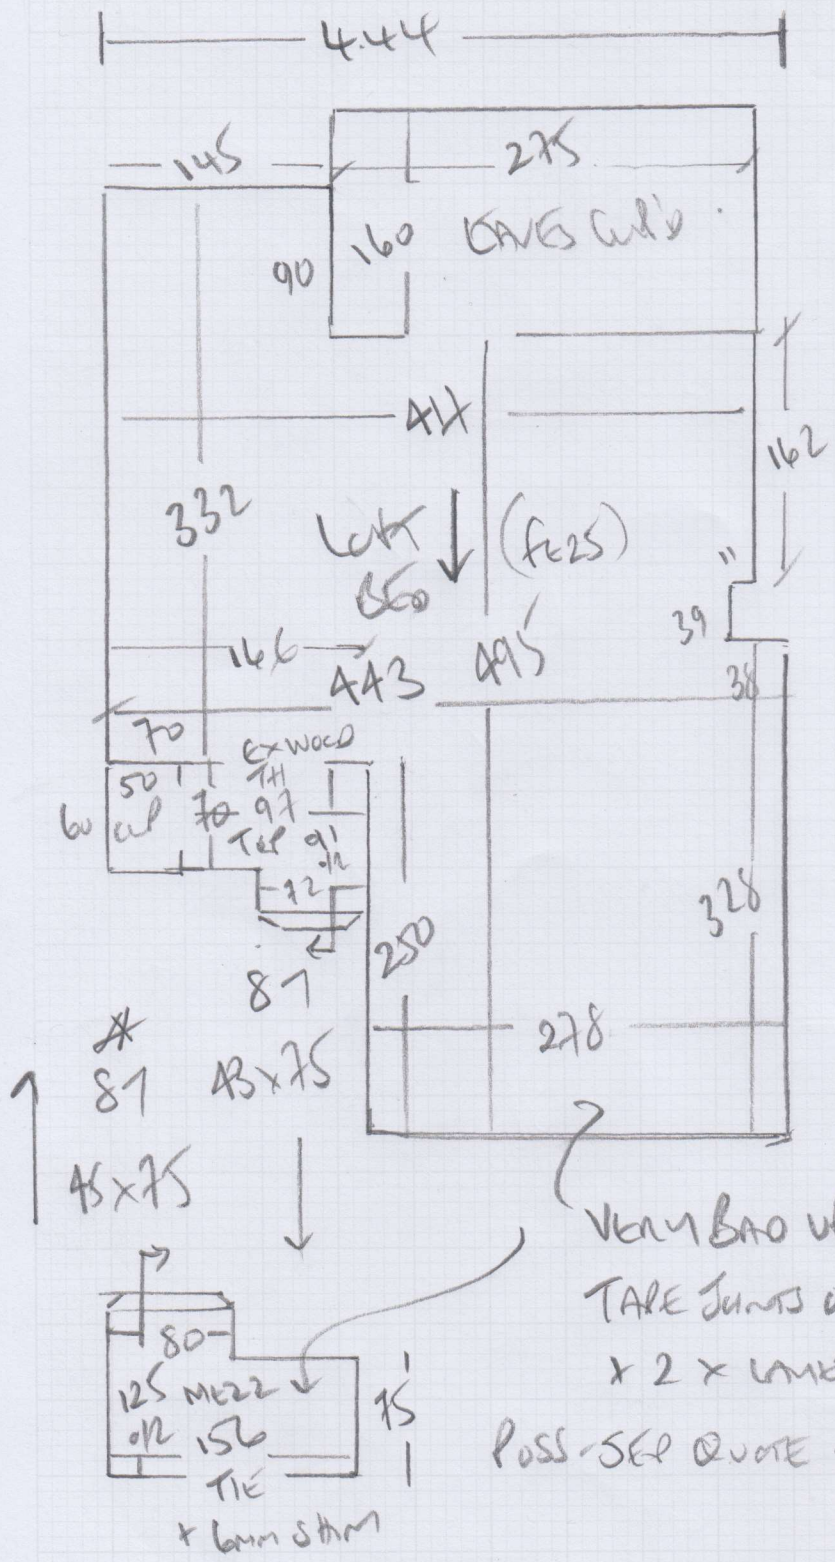 4.44
145
275
90
160
EAVES
417
162
332
LOFT
(FE25)
BED
"
39
166
443
495
38
70
EX WOOD
50
TH
60
CUP
70
97
TOP
91
O/R
72
250
328
81
278
81
43 x 75
45 x 75
VERY BAD
TAPE JOINTS
+ 2 x
POSS - SEP QUOTE
80
125
MEZZ
75
O/R
156
TIE
+ 6mm SHIM